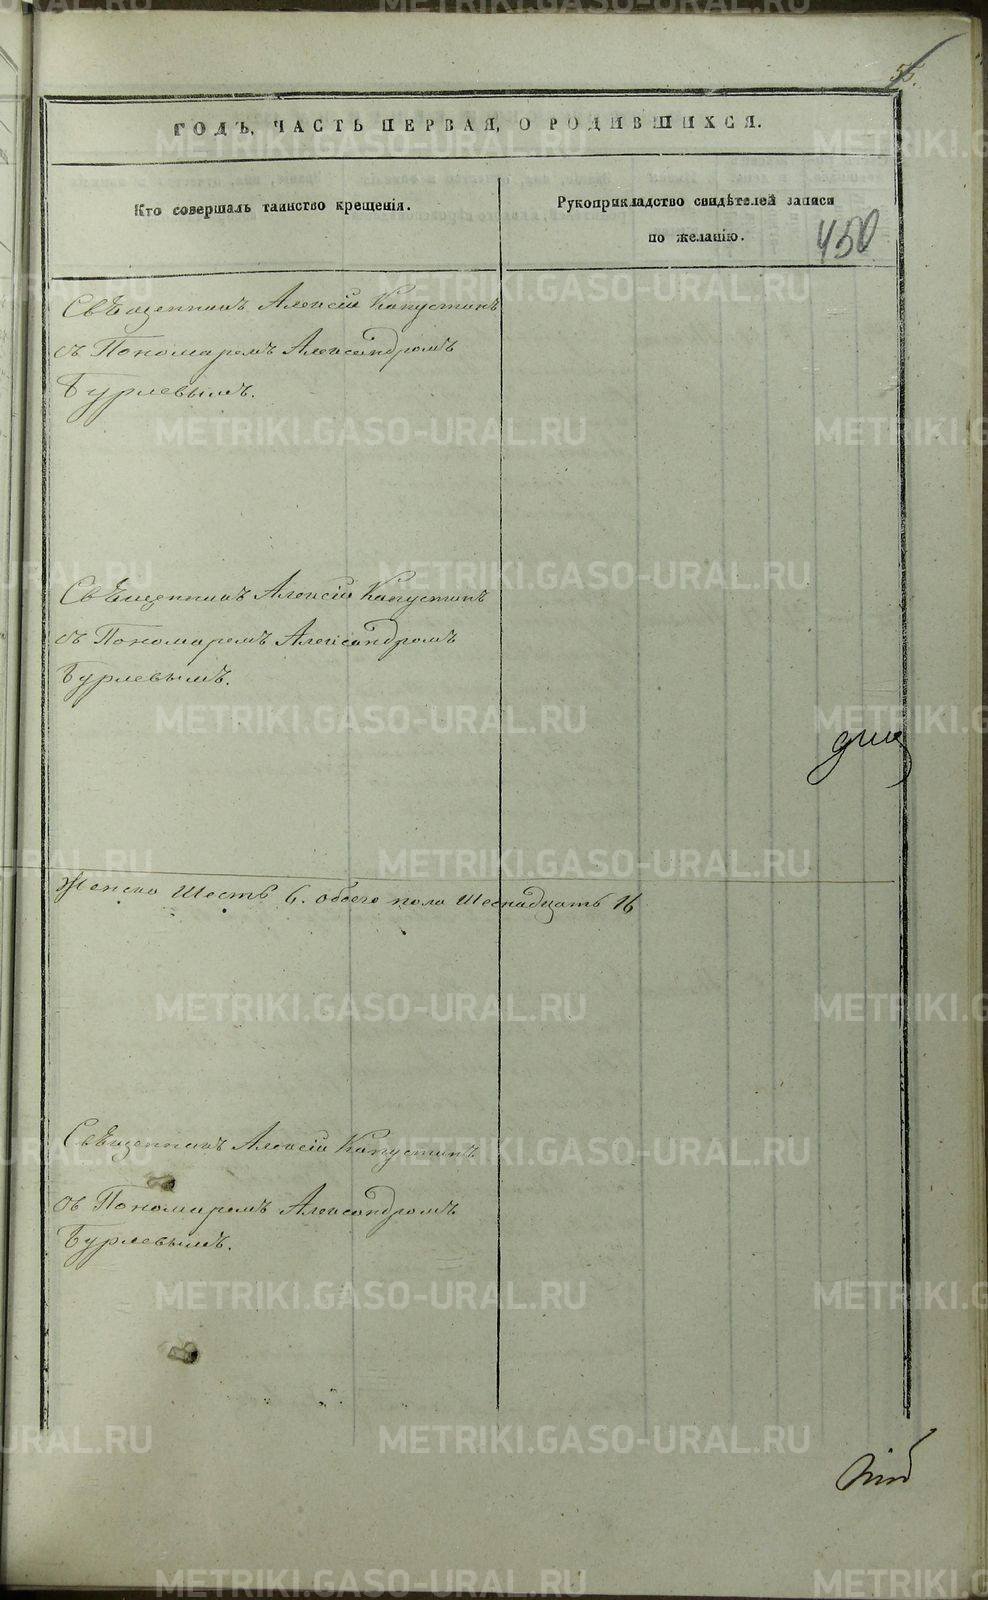 55.
ГОДЪ, ЧАСТЬ ПЕРВАЯ, О РОДИВШИХСЯ.
Кто совершалъ таинство крещенія.
Рукоприкладство свидѣтелей записи
по желанію.
450
Священникъ Алексій Капустинъ
съ Пономаремъ Александромъ
Бурлевымъ.
Священникъ Алексій Капустинъ
съ Пономаремъ Александромъ
Бурлевымъ.
Женска Шесть 6. обоего пола Шеснадцать 16
Священникъ Алексій Капустинъ
съ Пономаремъ Александромъ
Бурлевымъ.
METRIKI.GASO-URAL.RU